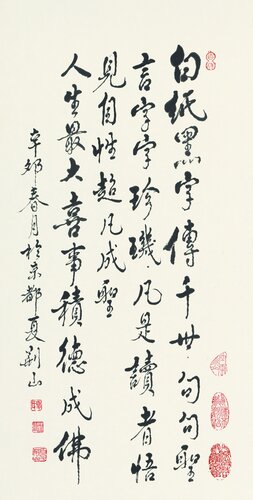 白纸黑字傳千世句句聖
言字字珍璣凡是讀者悟
見自性超凡成聖
人生最大喜事積德成佛
辛卯春月於京都夏荊山